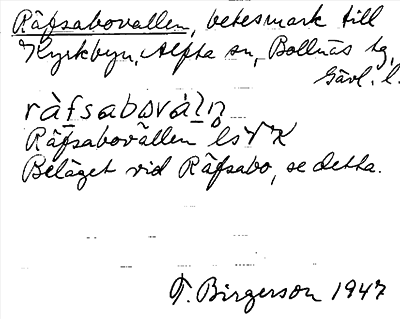 Råfsabovallen, betesmark till
Kyrkbyn, Alfta sn, Bollnäs tg,
Gävl. l.
ràfsabovàln̥
Råfsabovällen
Beläget vid Råfsabo, se detta.
T. Birgerson 1947